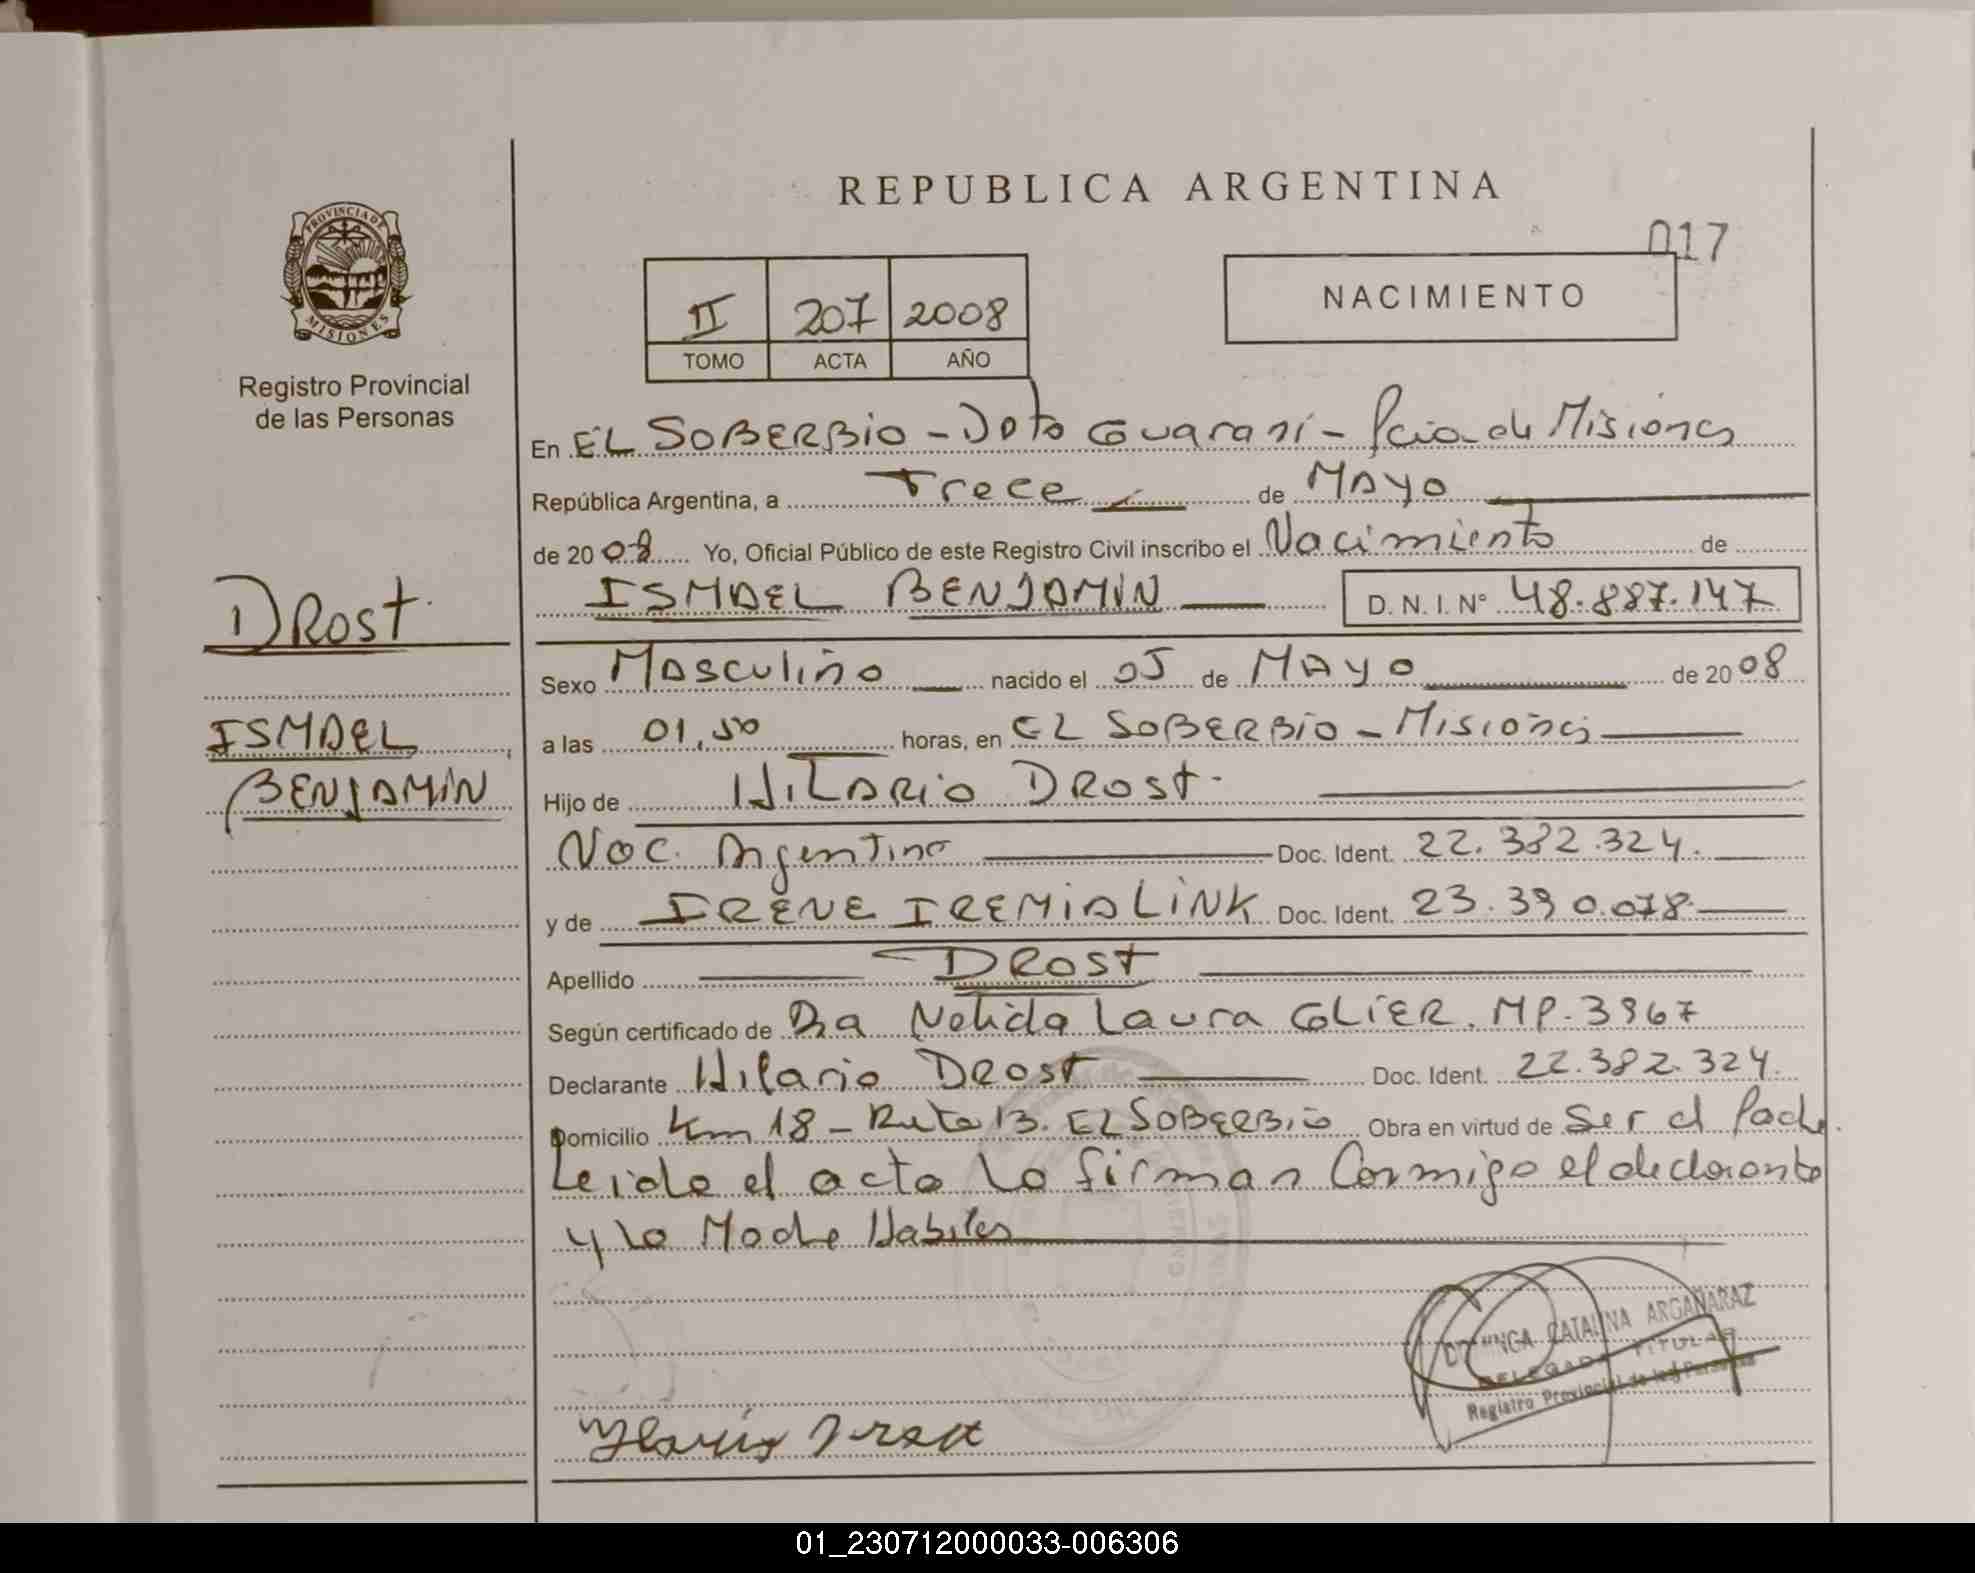 REPUBLICA ARGENTINA
017
PROVINCIA DE
MISIONES
Registro Provincial
de las Personas
II 207 2008
TOMO ACTA AÑO
NACIMIENTO
En EL SOBERBIO - Dpto Guaraní - Pcia de Misiones
República Argentina, a Trece de MAYO
de 2008 Yo, Oficial Público de este Registro Civil inscribo el Nacimiento de
ISMAEL BENJAMIN D. N. I. Nº 48.887.147
DROST
ISMAEL
BENJAMIN
Sexo MASCULINO nacido el 05 de MAYO de 2008
a las 01,50 horas, en EL SOBERBIO - MISIONES
Hijo de HILARIO DROST
Nac. Argentina Doc. Ident. 22.382.324.
y de IRENE IREMIA LINK Doc. Ident. 23.390.078
Apellido DROST
Según certificado de Dra Nelida Laura GLIER. MP. 3967
Declarante Hilario DROST Doc. Ident. 22.382.324.
Domicilio Km 18 - Ruta 13. EL SOBERBIO Obra en virtud de Ser el Padre.
Leida el acta la firman Conmigo el declarante
y la Madre Habiles
DOMINGA CATALINA ARGAÑARAZ
DELEGADA TITULAR
Registro Provincial de las Personas
01_230712000033-006306